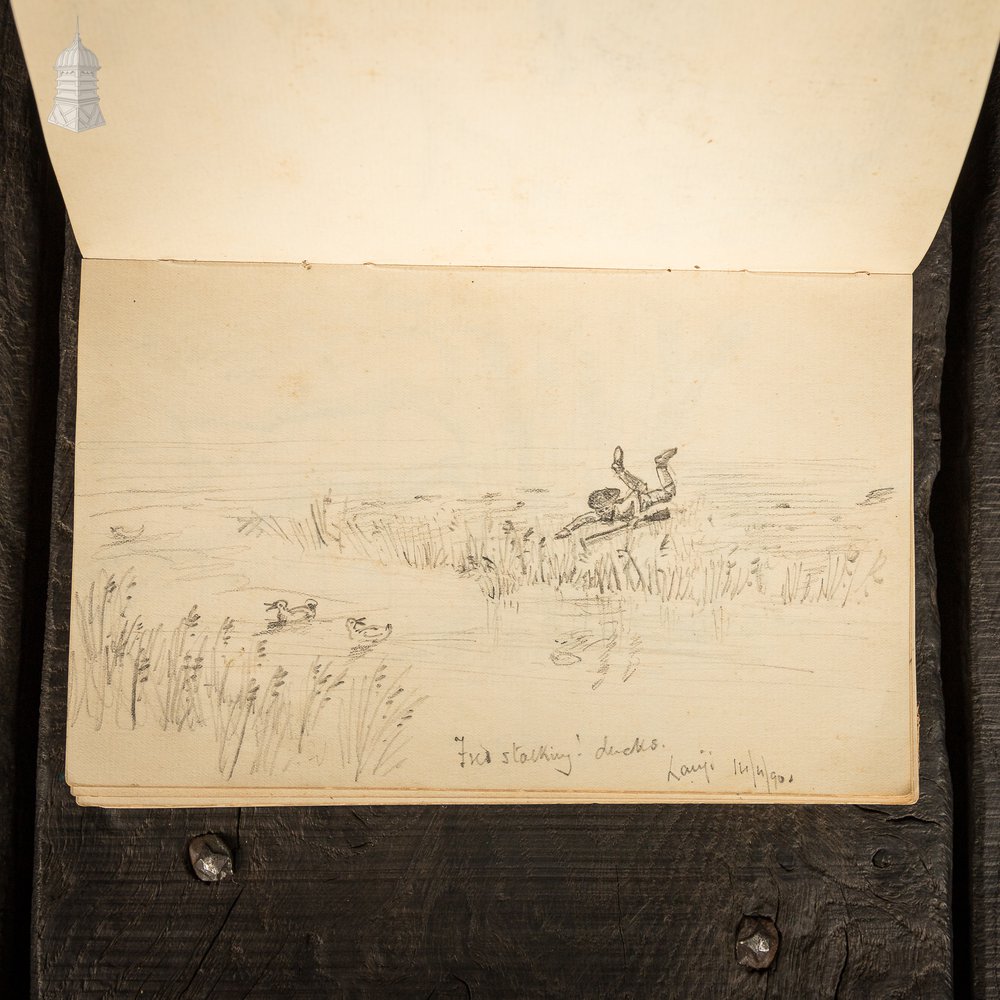 Fred stalking! ducks.
Lanji 14/11/90.